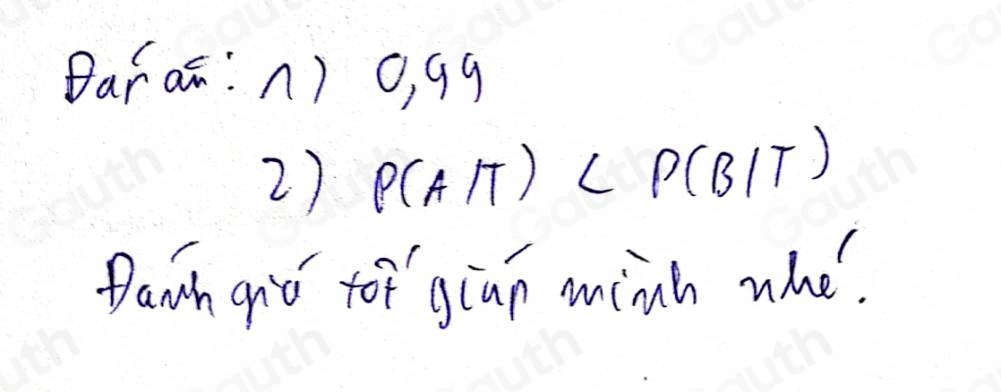 Đáp án: 1) 0,99
2) P(A/T) < P(B/T)
Đánh giá tốt giúp mình nhé.